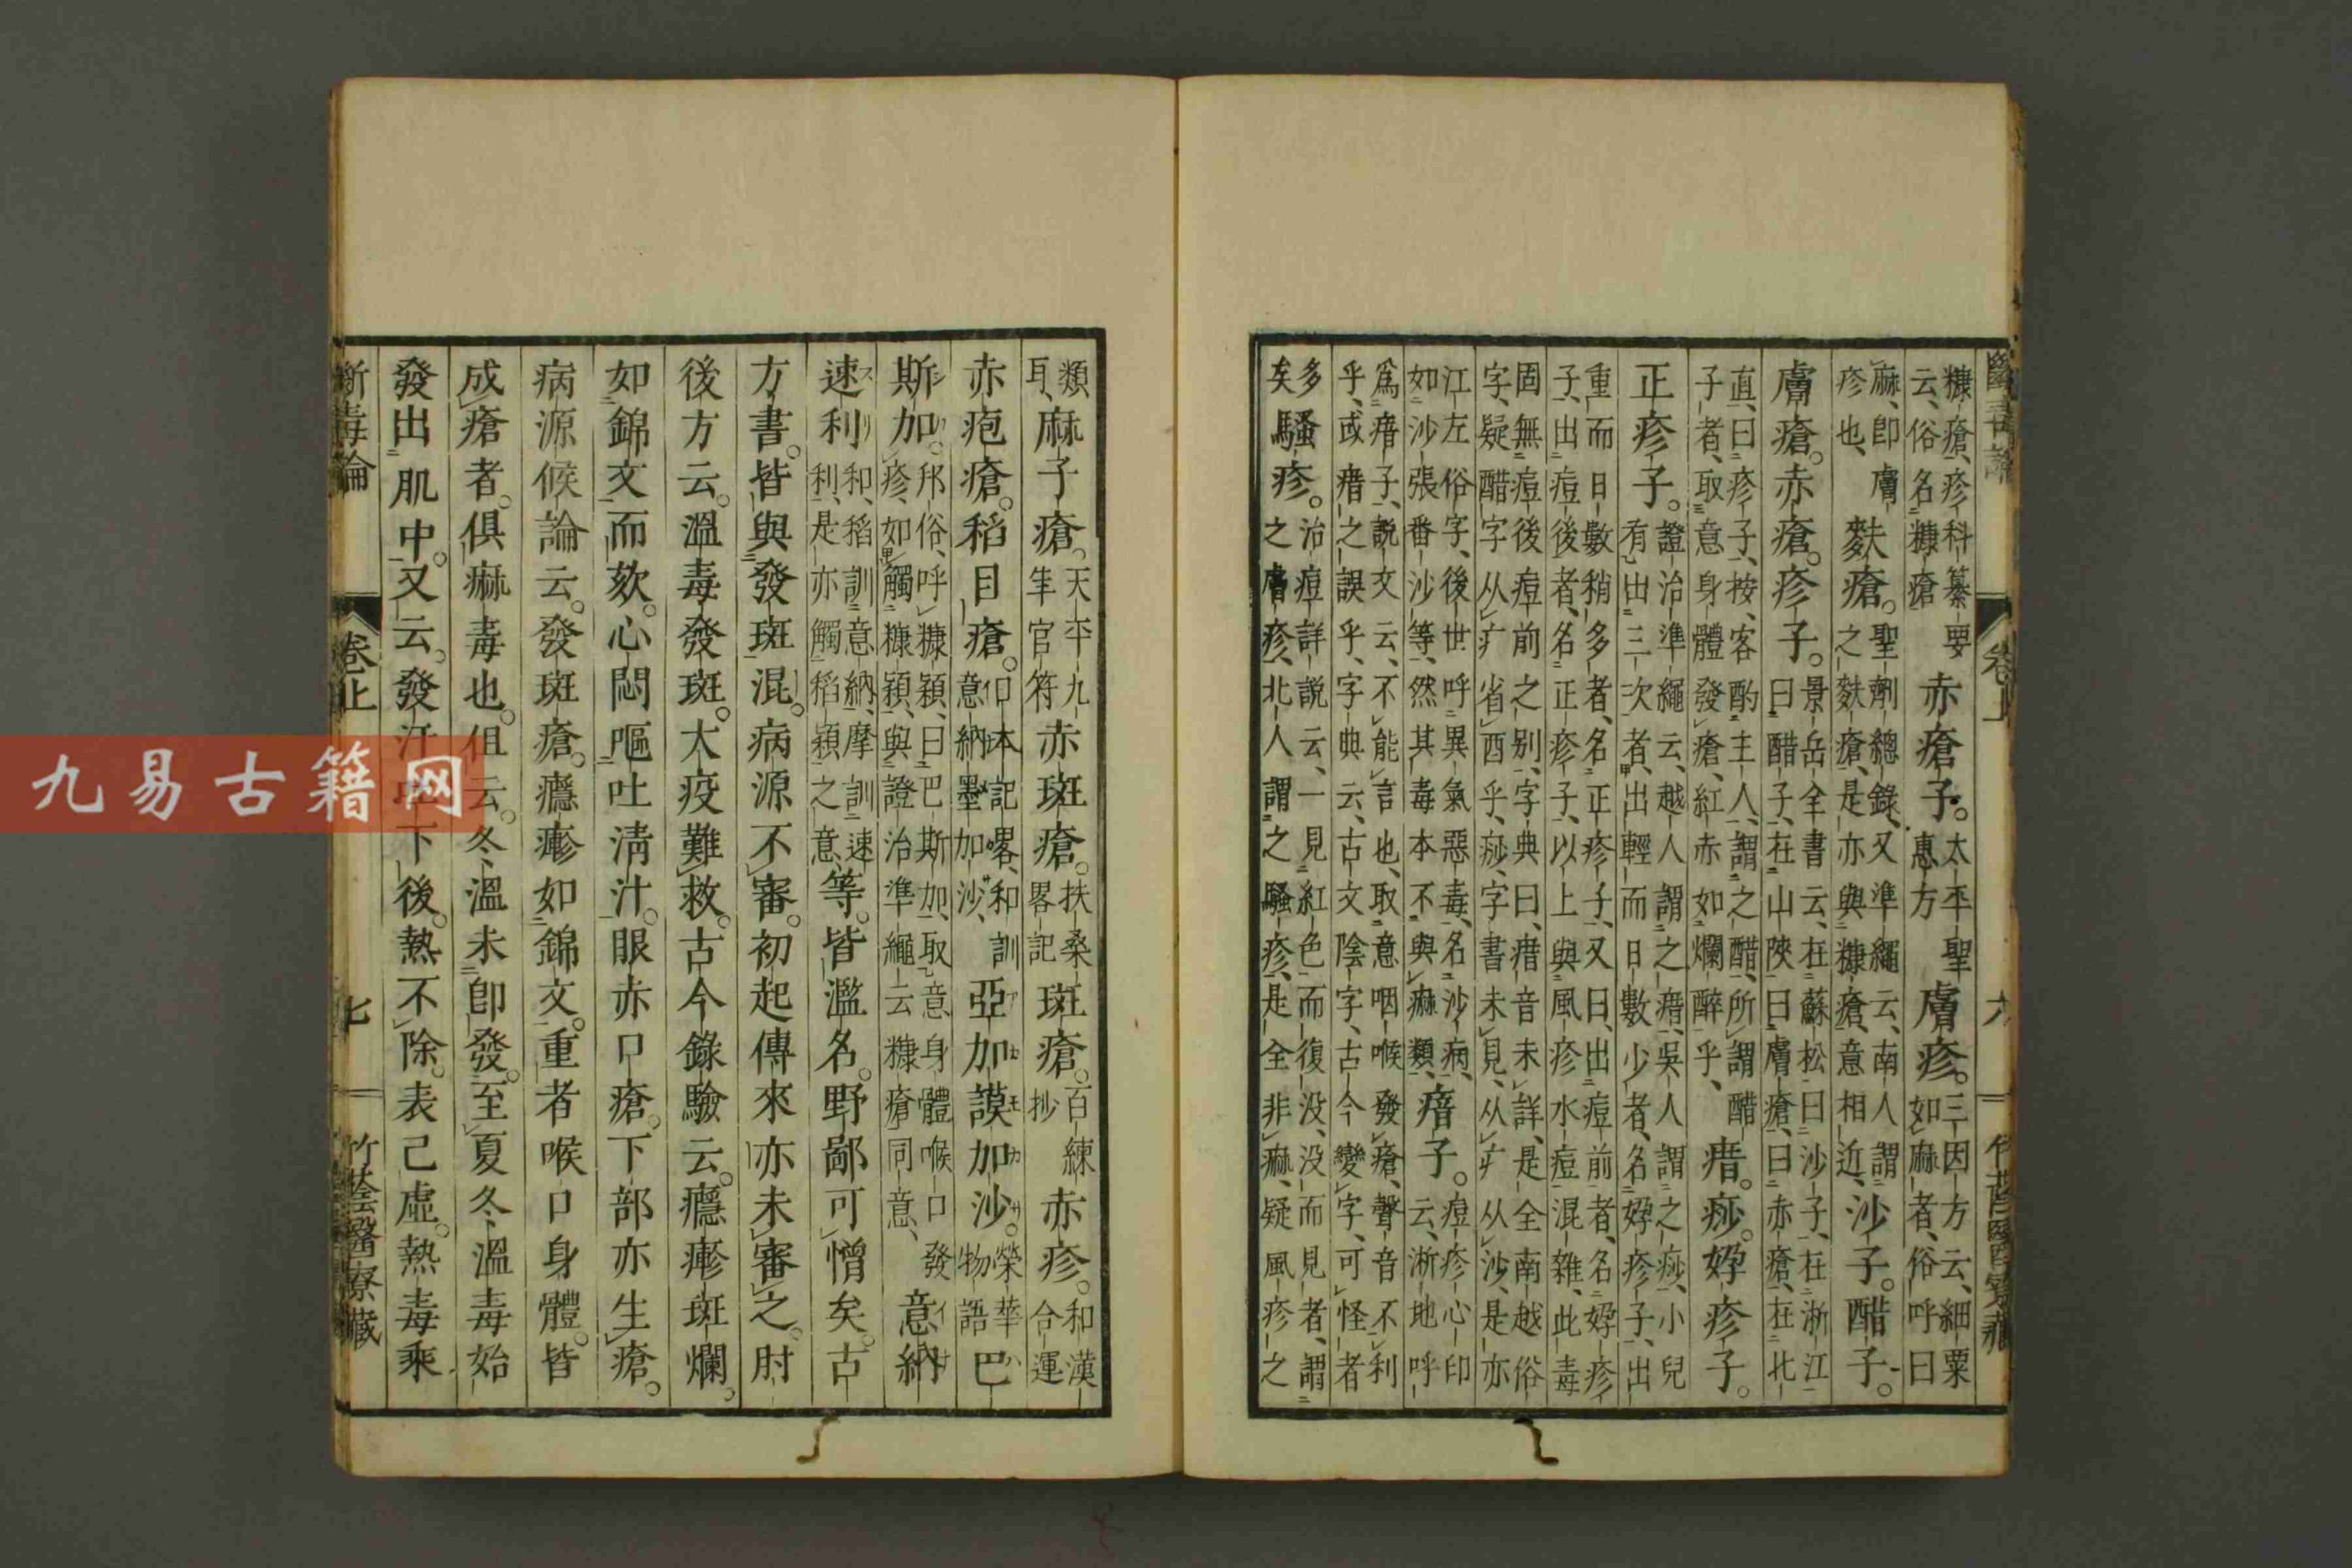 糠瘡、疹科纂要云、俗名糠瘡赤瘡子。太平聖惠方膚疹。三因方云、細粟如麻者、俗呼曰
麻、即膚疹也、麩瘡。聖劑總錄、又準繩云、南人謂之麩瘡、是亦與糠瘡、意相近、沙子。醋子。
膚瘡。赤瘡。疹子。景岳全書云、在蘇松曰沙子、在浙江曰醋子、在山陝曰膚瘡、曰赤瘡、在北
直、曰疹子、按、客酌主人、謂之醋、所謂醋子者、取意身體發瘡、紅赤如爛醉乎、瘄。痧。妳疹子。
正疹子。證治準繩云、越人謂之瘄、吳人謂之痧、小兒有出三次者、出輕而日數少者、名妳疹子、出
重而日數稍多者、名正疹子、又曰、出痘前者、名妳疹子、出痘後者、名正疹子、以上與風疹水痘混雜、此毒
固無痘後痘前之別、字典曰、瘄音未詳、是全南越俗字、疑醋字从疒省酉乎、痧、字書未見、从疒从沙、是亦
江左俗字、後世呼異氣惡毒、名沙病、如沙張番沙等、然其毒本不與痲類、瘖子。痘疹心印云、淅地呼
爲瘖子、說文云、不能言也、取意咽喉發瘡、聲音不利乎、或瘄之誤乎、字典云、古文陰字、古今變字、可怪者
多矣騷疹。治痘詳說云、一見紅色而復没、没而見者、謂之膚疹、北人謂之騷疹、是全非痲、疑風疹之
卷上 六
類耳、麻子瘡。天平九年官符赤斑瘡。扶桑畧記斑瘡。百練抄赤疹。和漢合運
赤疱瘡。稻目瘡。日本記畧、和訓意納墨加沙、亞加謨加沙。榮華物語巴
斯加。邦俗、呼糠穎、曰巴斯加、取意身體喉口發疹、如觸糠穎、與證治準繩云糠瘡同意、意納
速利和、稻訓意納、摩訓速利、是亦觸稻穎之意、等。皆濫名。野鄙可憎矣。古
方書。皆與發斑混。病源不審。初起傳來亦未審之。肘
後方云。溫毒發斑。大疫難救。古今錄驗云。癮瘮斑爛。
如錦文而欬。心悶嘔吐清汁。眼赤口瘡。下部亦生瘡。
病源候論云。發斑瘡。癮瘮如錦文。重者喉口身體。皆
成瘡者。俱痲毒也。但云。冬溫未即發。至夏冬溫毒始
發出肌中。又云。發汗吐下後。熱不除。表己虛。熱毒乘
斷毒論 卷上 七 竹蔭醫寮藏
九易古籍网